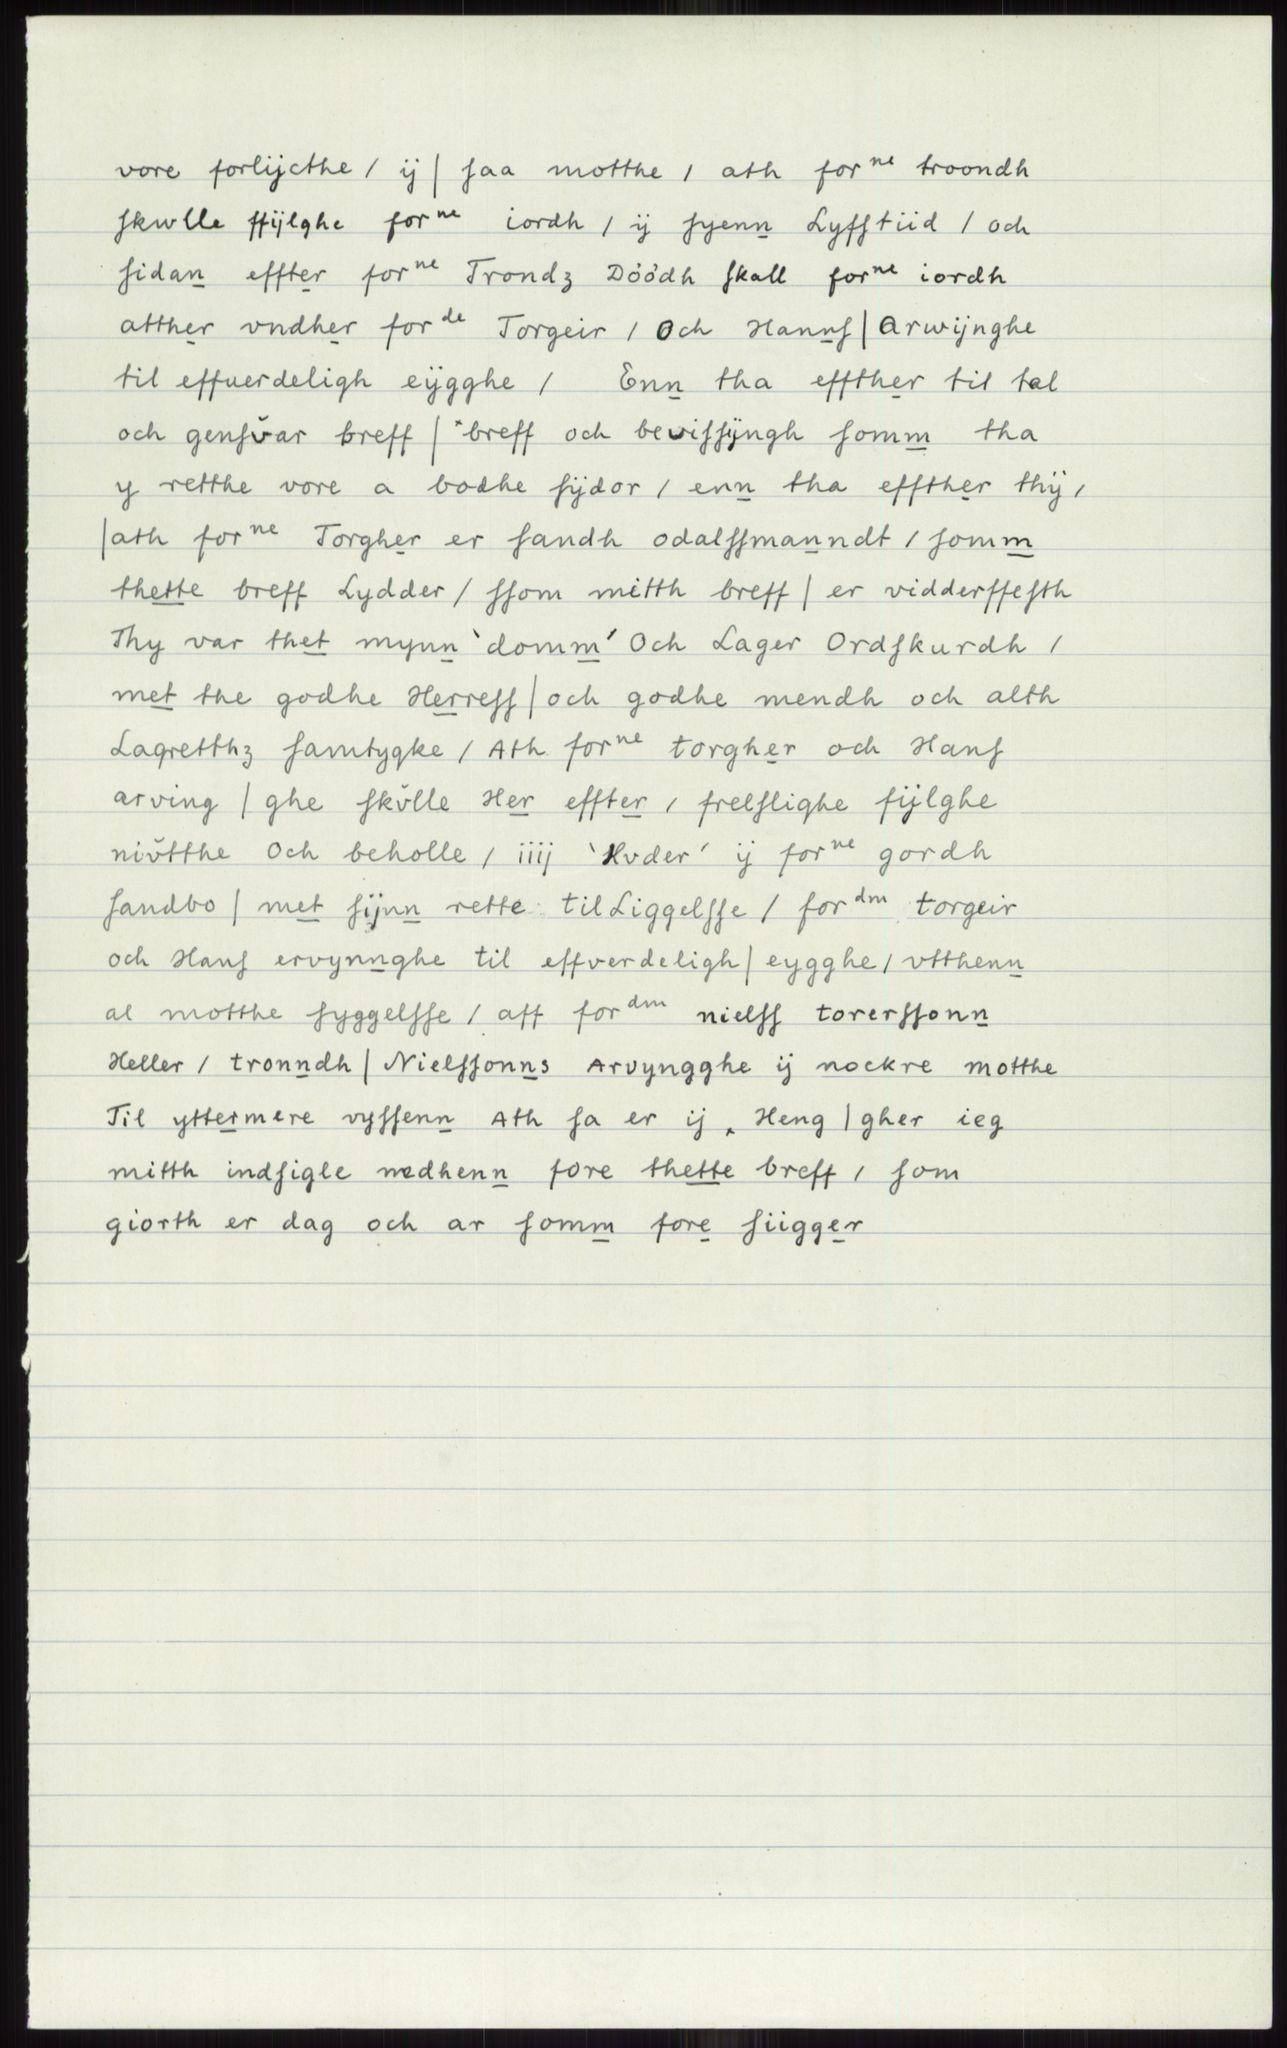 vore forlijcthe / ij | saa motthe / ath forⁿᵉ troondh
skwlle ffijlghe forⁿᵉ iordh / ij syenn Lyffstiid / och
sidan effter forⁿᵉ Trondz Dóódh skall forⁿᵉ iordh
atther vndher forᵈᵉ Torgeir / Och Hanns | Arwijnghe
til effuerdeligh eÿgghe / Enn tha effther til tal
och gensv̌ar breff | *breff och bevissijngh somm tha
y retthe vore a bodhe sijdor / enn tha effther thij /
|ath forⁿᵉ Torgher er sandh odalssmanndt / somm
thette breff Lydder / ssom mitth breff | er vidderffesth
Thy var thet mynn ‵domm′ Och Lager Ordskurdh /
met the godhe Herress | och godhe mendh och alth
Lagretthz samtygke / Ath forⁿᵉ torgher och Hans
arving | ghe skv̌lle Her effter / frelslighe fijlghe
niv̌tthe Och beholle / iiij ‵Hvder′ ij forⁿᵉ gordh
sandbo | met sijnn rette tilLiggelsse / forᵈᵐ torgeir
och Hans ervynnghe til effverdeligh | eygghe / vtthenn
al motthe syggelsse / aff forᵈᵐ nielss torerssonn
Heller / tronndh | Nielssonns Arvyngghe ij nockre motthe
Til yttermere vyssenn Ath sa er ij ‸ Heng | gher ieg
mitth indsigle nedhenn fore thette breff / som
giorth er dag och ar somm fore siigger